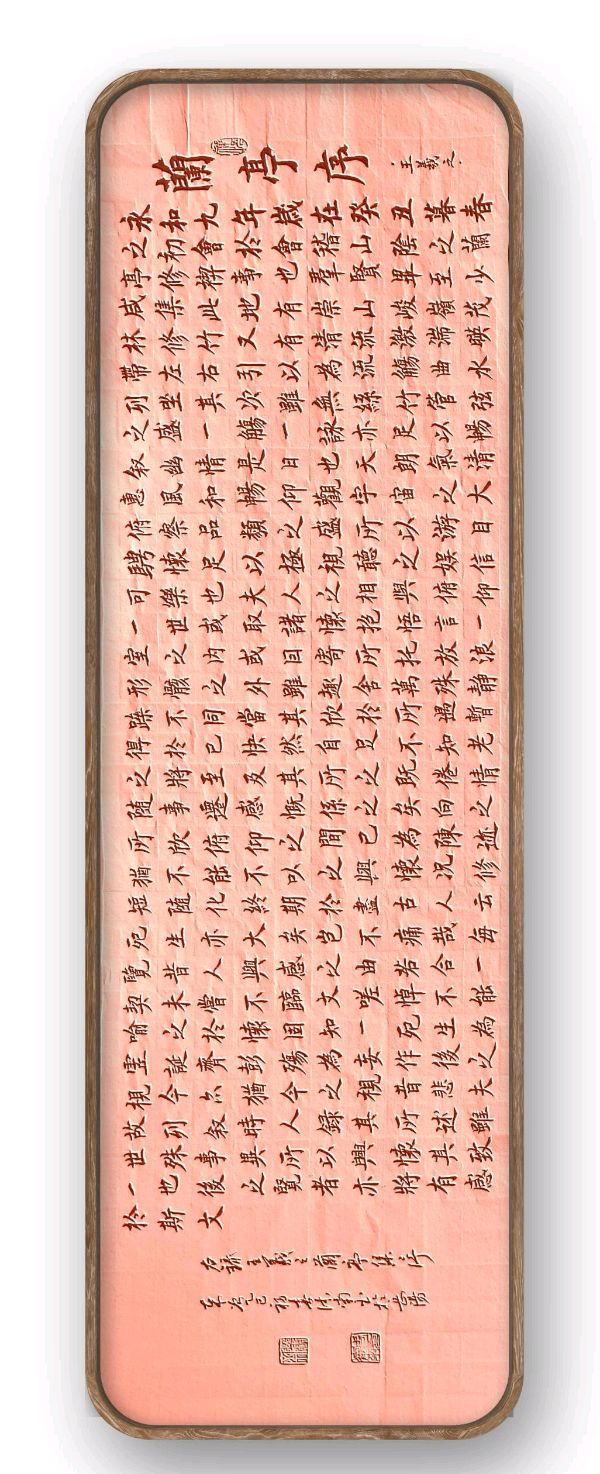 蘭亭序
王羲之
永和九年歲在癸丑暮春
之初會於會稽山陰之蘭
亭修禊事也羣賢畢至少
咸集此地有崇山峻嶺茂
林修竹又有清流激湍映
帶左右引以為流觴曲水
列坐其次雖無絲竹管弦
之盛一觴一詠亦足以暢
敘幽情是日也天朗氣清
惠風和暢仰觀宇宙之大
俯察品類之盛所以游目
騁懷足以極視聽之娛信
可樂也夫人之相與俯仰
一世或取諸懷抱悟言一
室之內或因寄所托放浪
形骸之外雖趣舍萬殊靜
躁不同當其欣於所遇暫
得於己快然自足不知老
之將至及其所之既倦情
隨事遷感慨係之矣向之
所欣俯仰之間已為陳迹
猶不能不以之興懷況修
短隨化終期於盡古人云
死生亦大矣豈不痛哉每
覽昔人興感之由若合一
契未嘗不臨文嗟悼不能
喻之於懷固知一死生為
虛誕齊彭殤為妄作後之
視今亦猶今之視昔悲夫
故列敘時人錄其所述雖
世殊事異所以興懷其致
一也後之覽者亦將有感
於斯文
右錄王羲之蘭亭集序